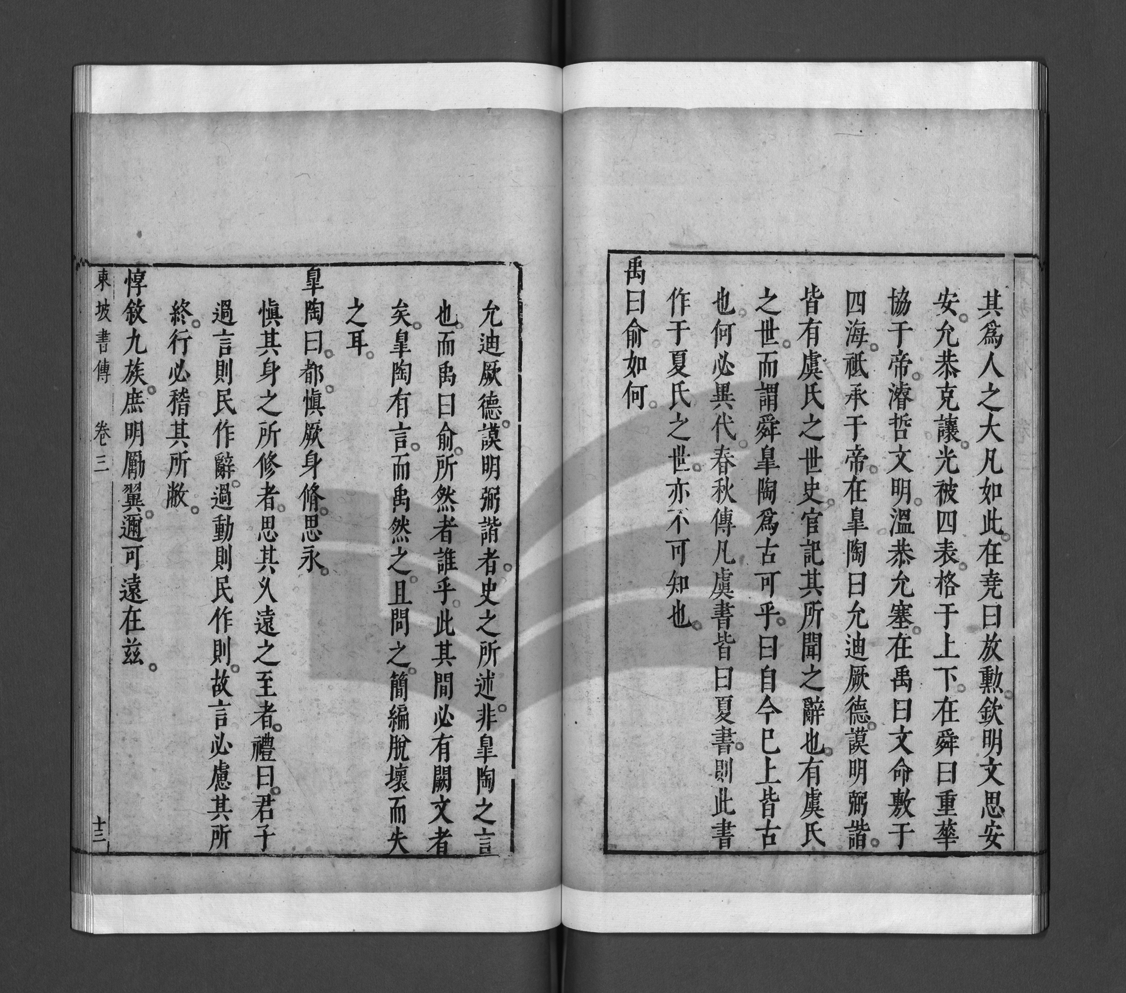 其為人之大凡如此。在堯曰放勳。欽明文思安
安。允恭克讓。光被四表。格于上下。在舜曰重華
協于帝。濬哲文明。溫恭允塞。在禹曰文命敷于
四海。祗承于帝。在皐陶曰允迪厥德。謨明弼諧。
皆有虞氏之世史官記其所聞之辭也。有虞氏
之世。而謂舜皐陶為古可乎。曰自今已上皆古
也。何必異代。春秋傳凡虞書皆曰夏書。則此書
作于夏氏之世。亦不可知也。
禹曰俞如何。
允迪厥德。謨明弼諧者。史之所述。非皐陶之言
也。而禹曰俞。所然者誰乎。此其間必有闕文者
矣。皐陶有言。而禹然之。且問之。簡編脫壞而失
之耳。
皐陶曰。都。慎厥身脩。思永。
慎其身之所修者。思其久遠之至者。禮曰。君子
過言則民作辭。過動則民作則。故言必慮其所
終。行必稽其所敝。
惇敘九族。庶明勵翼。邇可遠在茲。
東坡書傳 卷三 十三